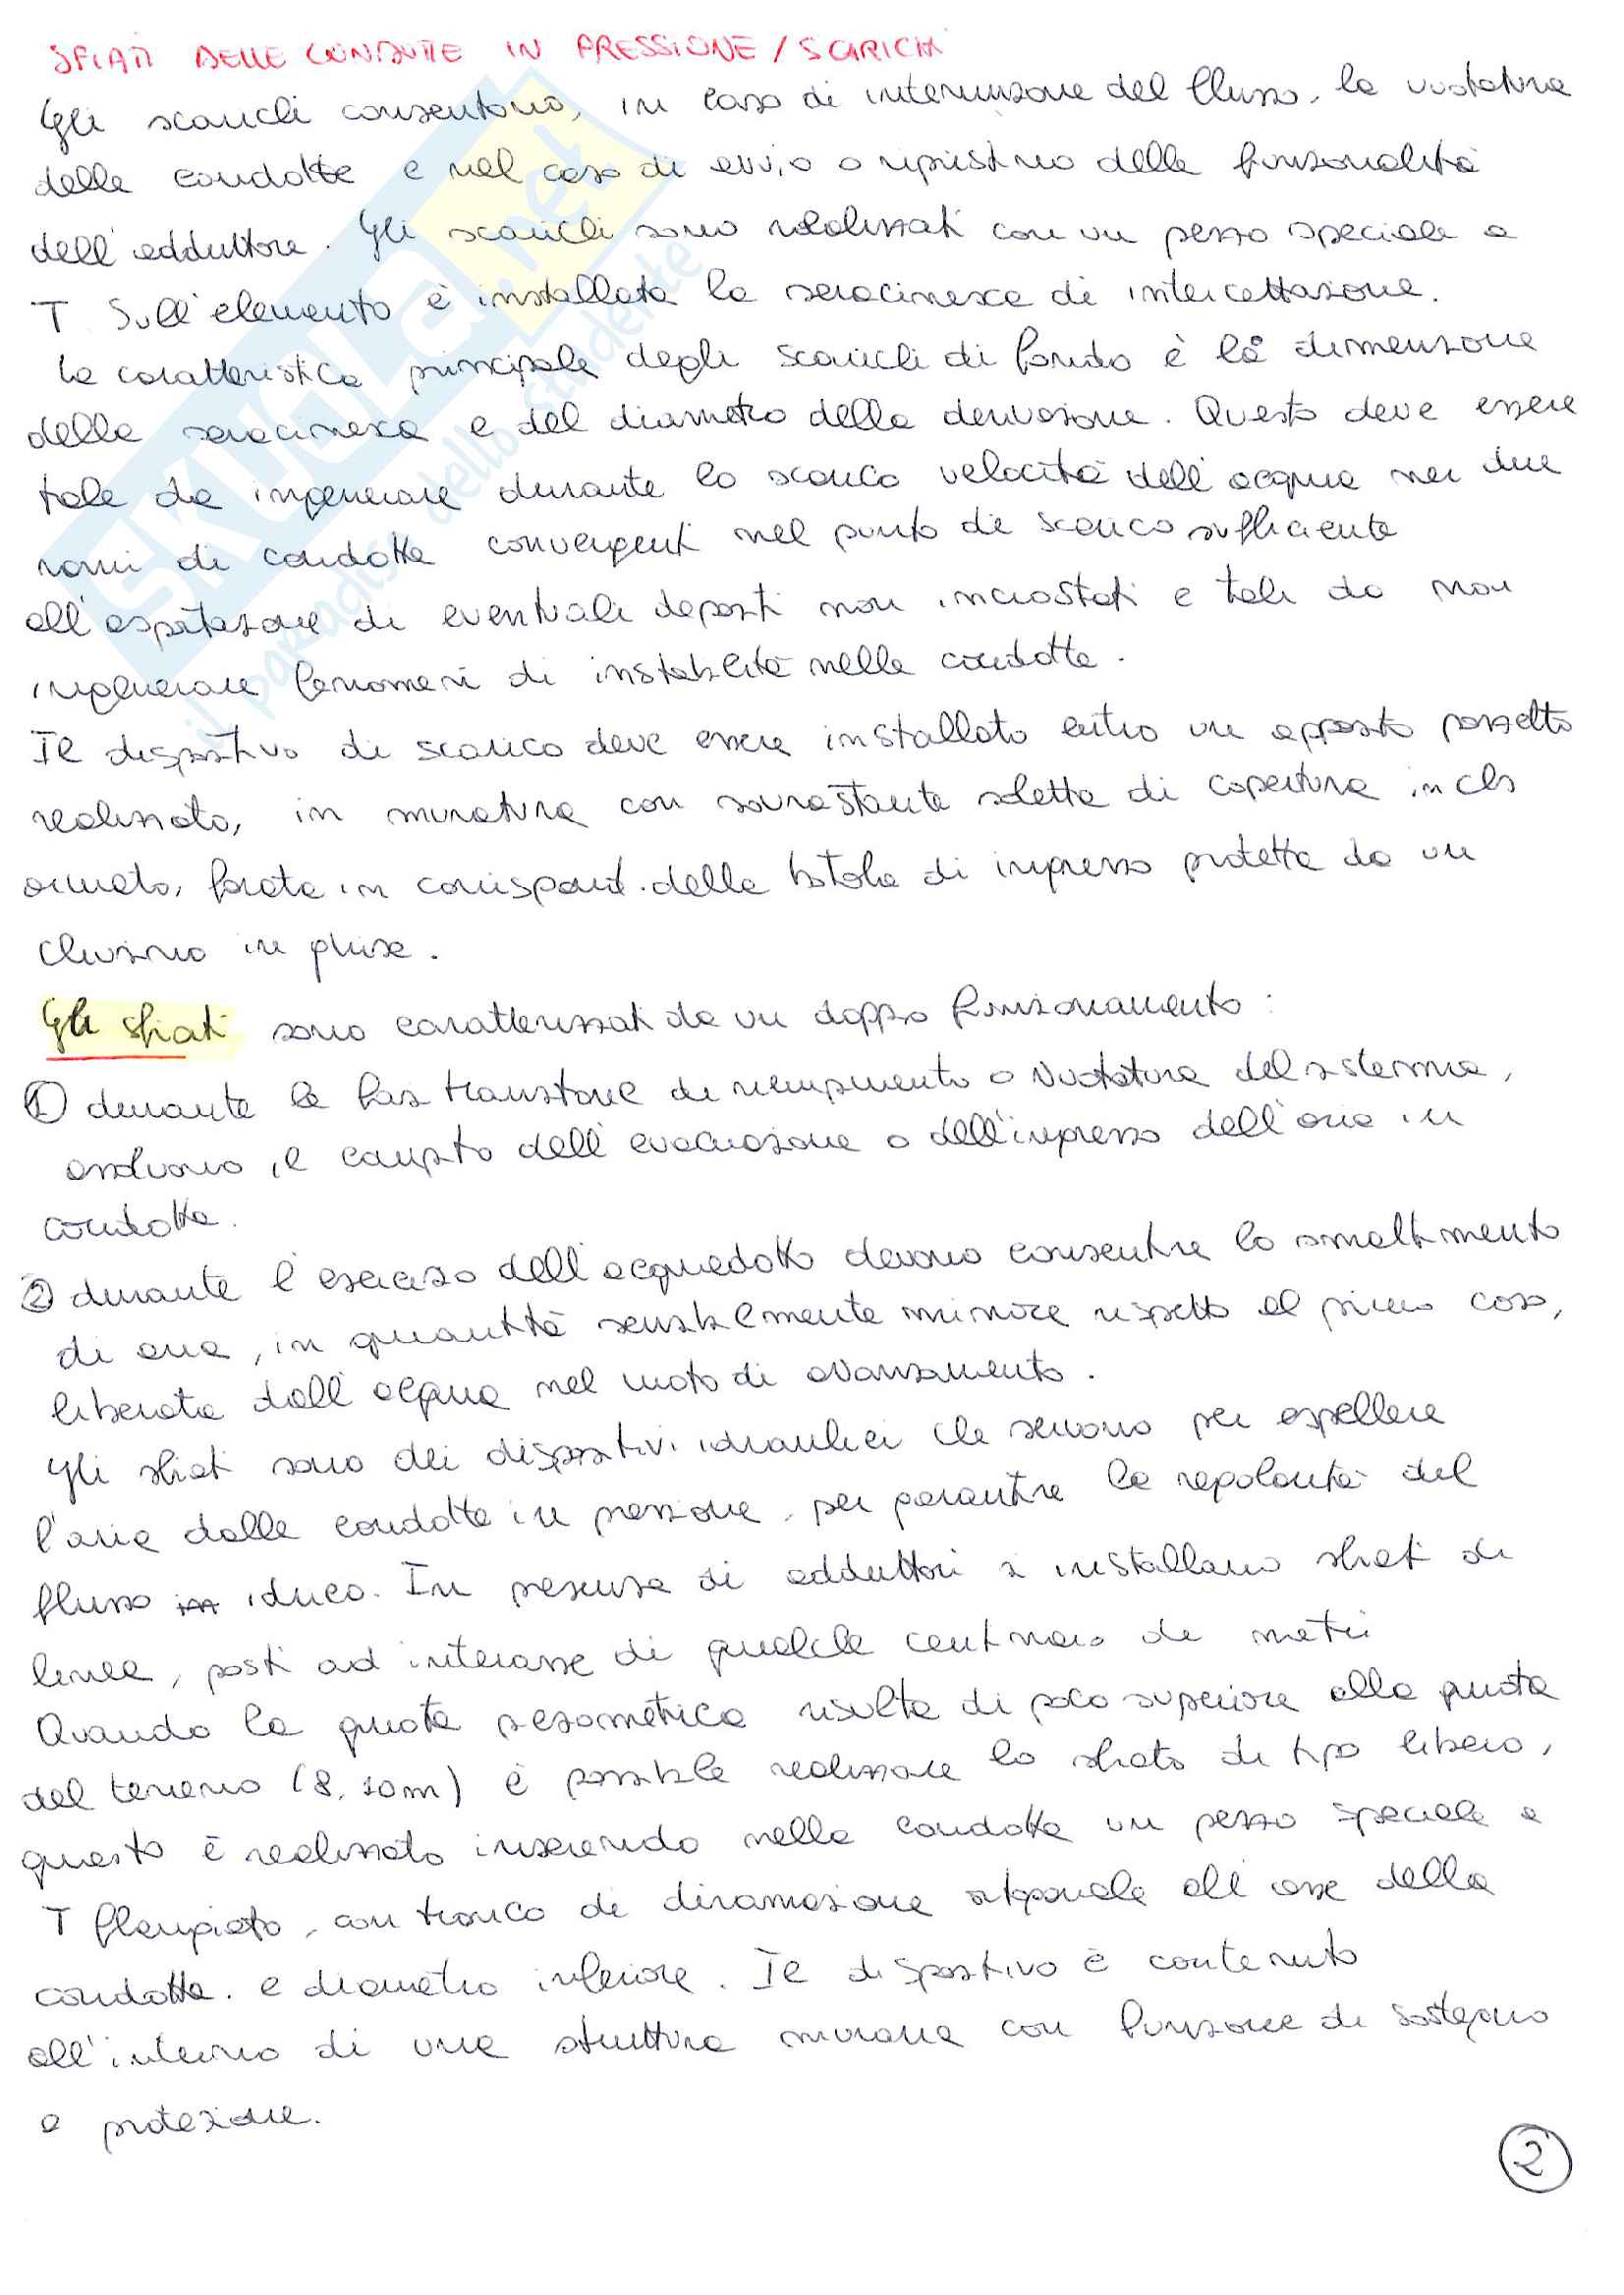 SFIATI DELLE CONDOTTE IN PRESSIONE / SCARICHI
Gli scarichi consentono, in caso di interruzione del flusso, la vuotatura
delle condotte e nel caso di avvio o ripristino della funzionalità
dell'adduttore. Gli scarichi sono realizzati con un pezzo speciale a
T. Sull'elemento è installata la saracinesca di intercettazione.
La caratteristica principale degli scarichi di fondo è la dimensione
della saracinesca e del diametro della derivazione. Questo deve essere
tale da ingenerare durante lo scarico velocità dell'acqua nei due
rami di condotta convergenti nel punto di scarico sufficiente
all'asportazione di eventuali depositi non incrostati e tali da non
ingenerare fenomeni di instabilità nella condotta.
Il dispositivo di scarico deve essere installato entro un apposito pozzetto
realizzato, in muratura con sovrastante soletta di copertura in cls
armato, forata in corrispond. della botola di ingresso protetta da un
chiusino in ghisa.
Gli sfiati sono caratterizzati da un doppio funzionamento:
① durante le fasi transitorie di riempimento o vuotatura del sistema,
assolvono il compito dell'evacuazione o dell'ingresso dell'aria in
condotta.
② durante l'esercizio dell'acquedotto devono consentire lo smaltimento
di aria, in quantità sensibilmente minore rispetto al primo caso,
liberata dall'acqua nel moto di avanzamento.
Gli sfiati sono dei dispositivi idraulici che servono per espellere
l'aria dalle condotte in pressione, per garantire la regolarità del
flusso idrico. In presenza di adduttori si installano sfiati di
linea, posti ad interasse di qualche centinaio di metri
Quando la quota piezometrica risulta di poco superiore alla quota
del terreno (8, 10m) è possibile realizzare lo sfiato di tipo libero,
questo è realizzato inserendo nella condotta un pezzo speciale a
T flangiato, con tronco di diramazione ortogonale all'asse della
condotta. e diametro inferiore. Il dispositivo è contenuto
all'interno di una struttura muraria con funzione di sostegno
e protezione.
2
SKUOLA.net
il paradiso dello studente